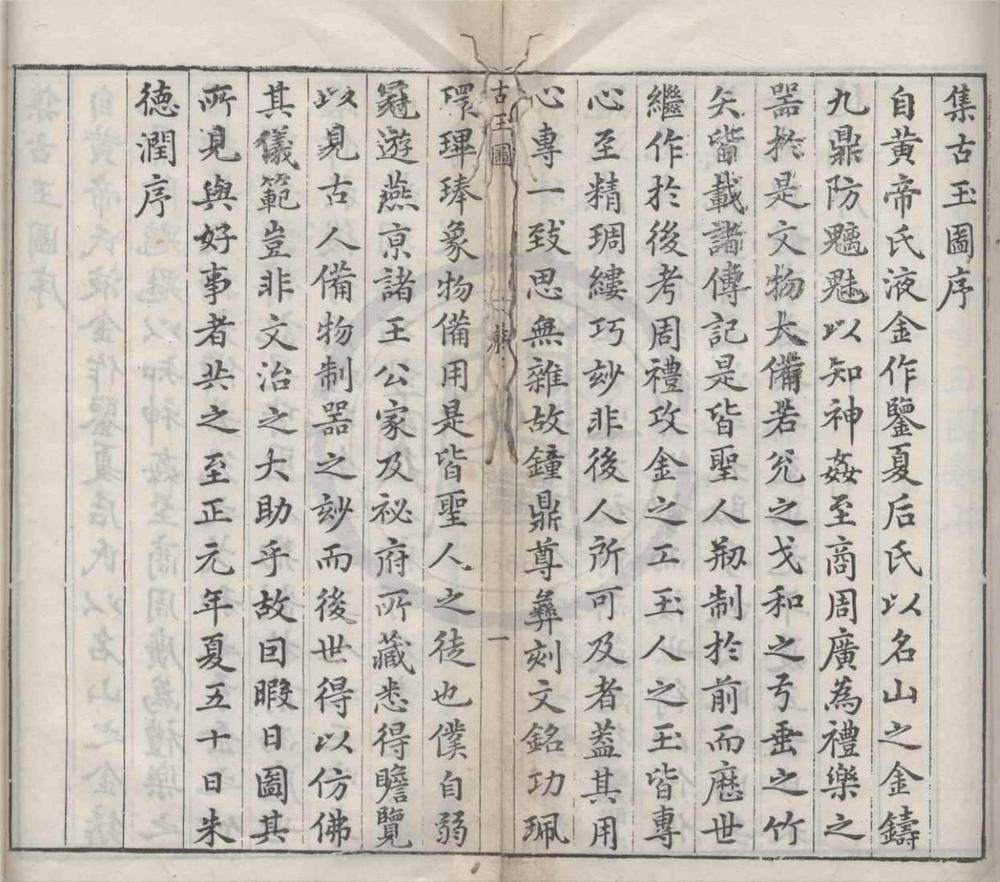 集古玉圖序
自黄帝氏液金作鑒夏后氏以名山之金鑄
九鼎防魑魅以知神姦至商周廣為禮樂之
器於是文物大備若兊之戈和之弓垂之竹
矢皆載諸傳記是皆聖人刱制於前而厯世
繼作於後考周禮攻金之工玉人之玉皆專
心至精琱縷巧玅非後人所可及者蓋其用
心專一致思無雜故鐘鼎尊彝刻文銘功珮
古玉圖
一
環琕琫象物備用是皆聖人之徒也僕自弱
冠遊燕亰諸王公家及祕府所藏悉得瞻覽
以見古人備物制器之玅而後世得以仿佛
其儀範豈非文治之大助乎故囙暇日圖其
所見與好事者共之至正元年夏五十日朱
德潤序